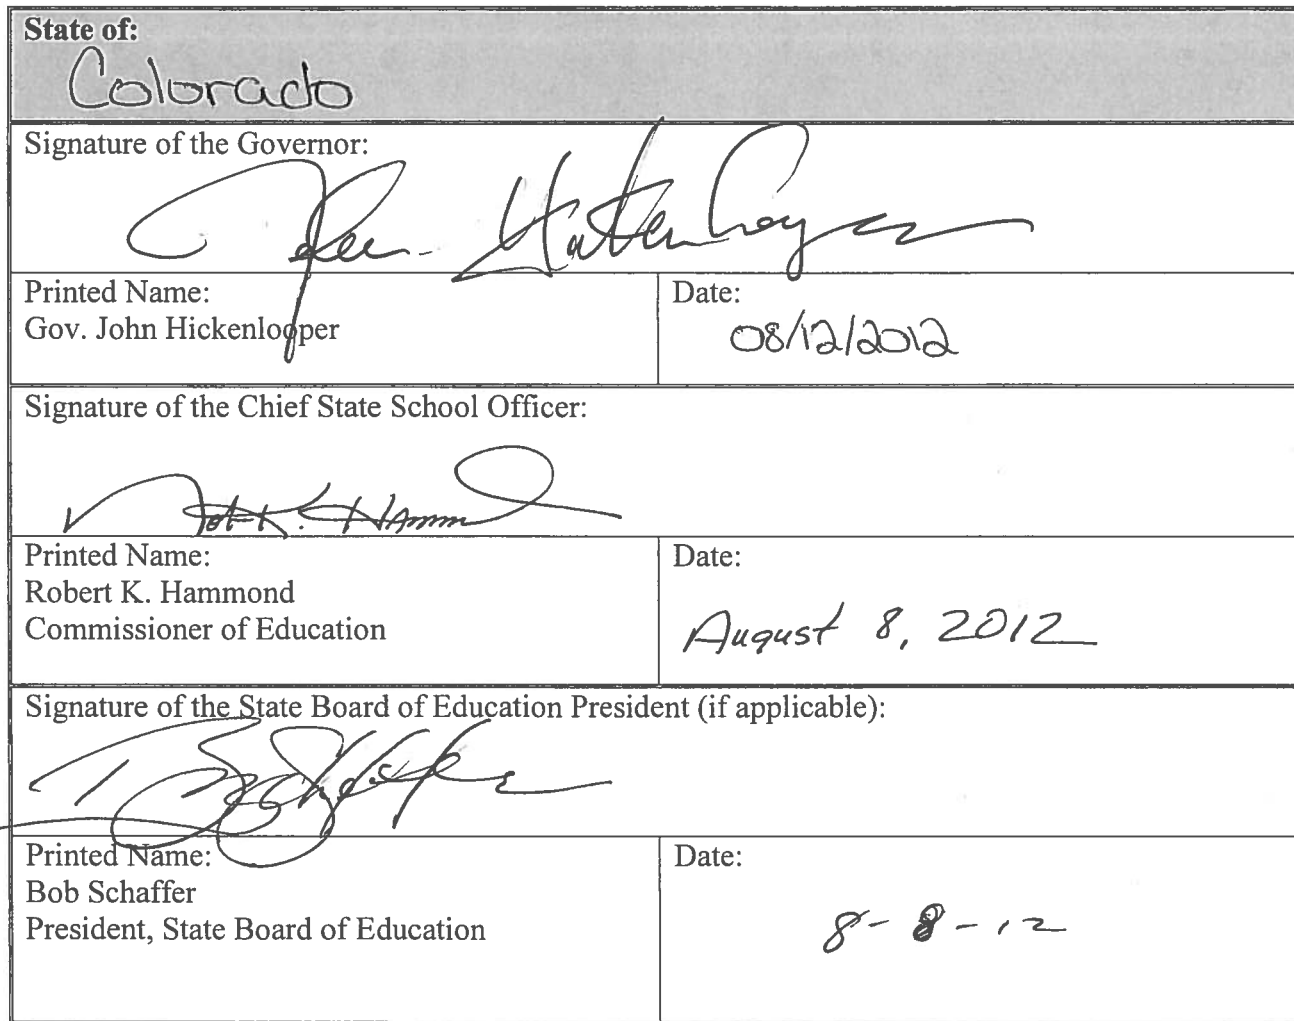 State of:
Colorado
Signature of the Governor:
Printed Name:
Gov. John Hickenlooper
Date:
08/12/2012
Signature of the Chief State School Officer:
Printed Name:
Robert K. Hammond
Commissioner of Education
Date:
August 8, 2012
Signature of the State Board of Education President (if applicable):
Printed Name:
Bob Schaffer
President, State Board of Education
Date:
8-8-12